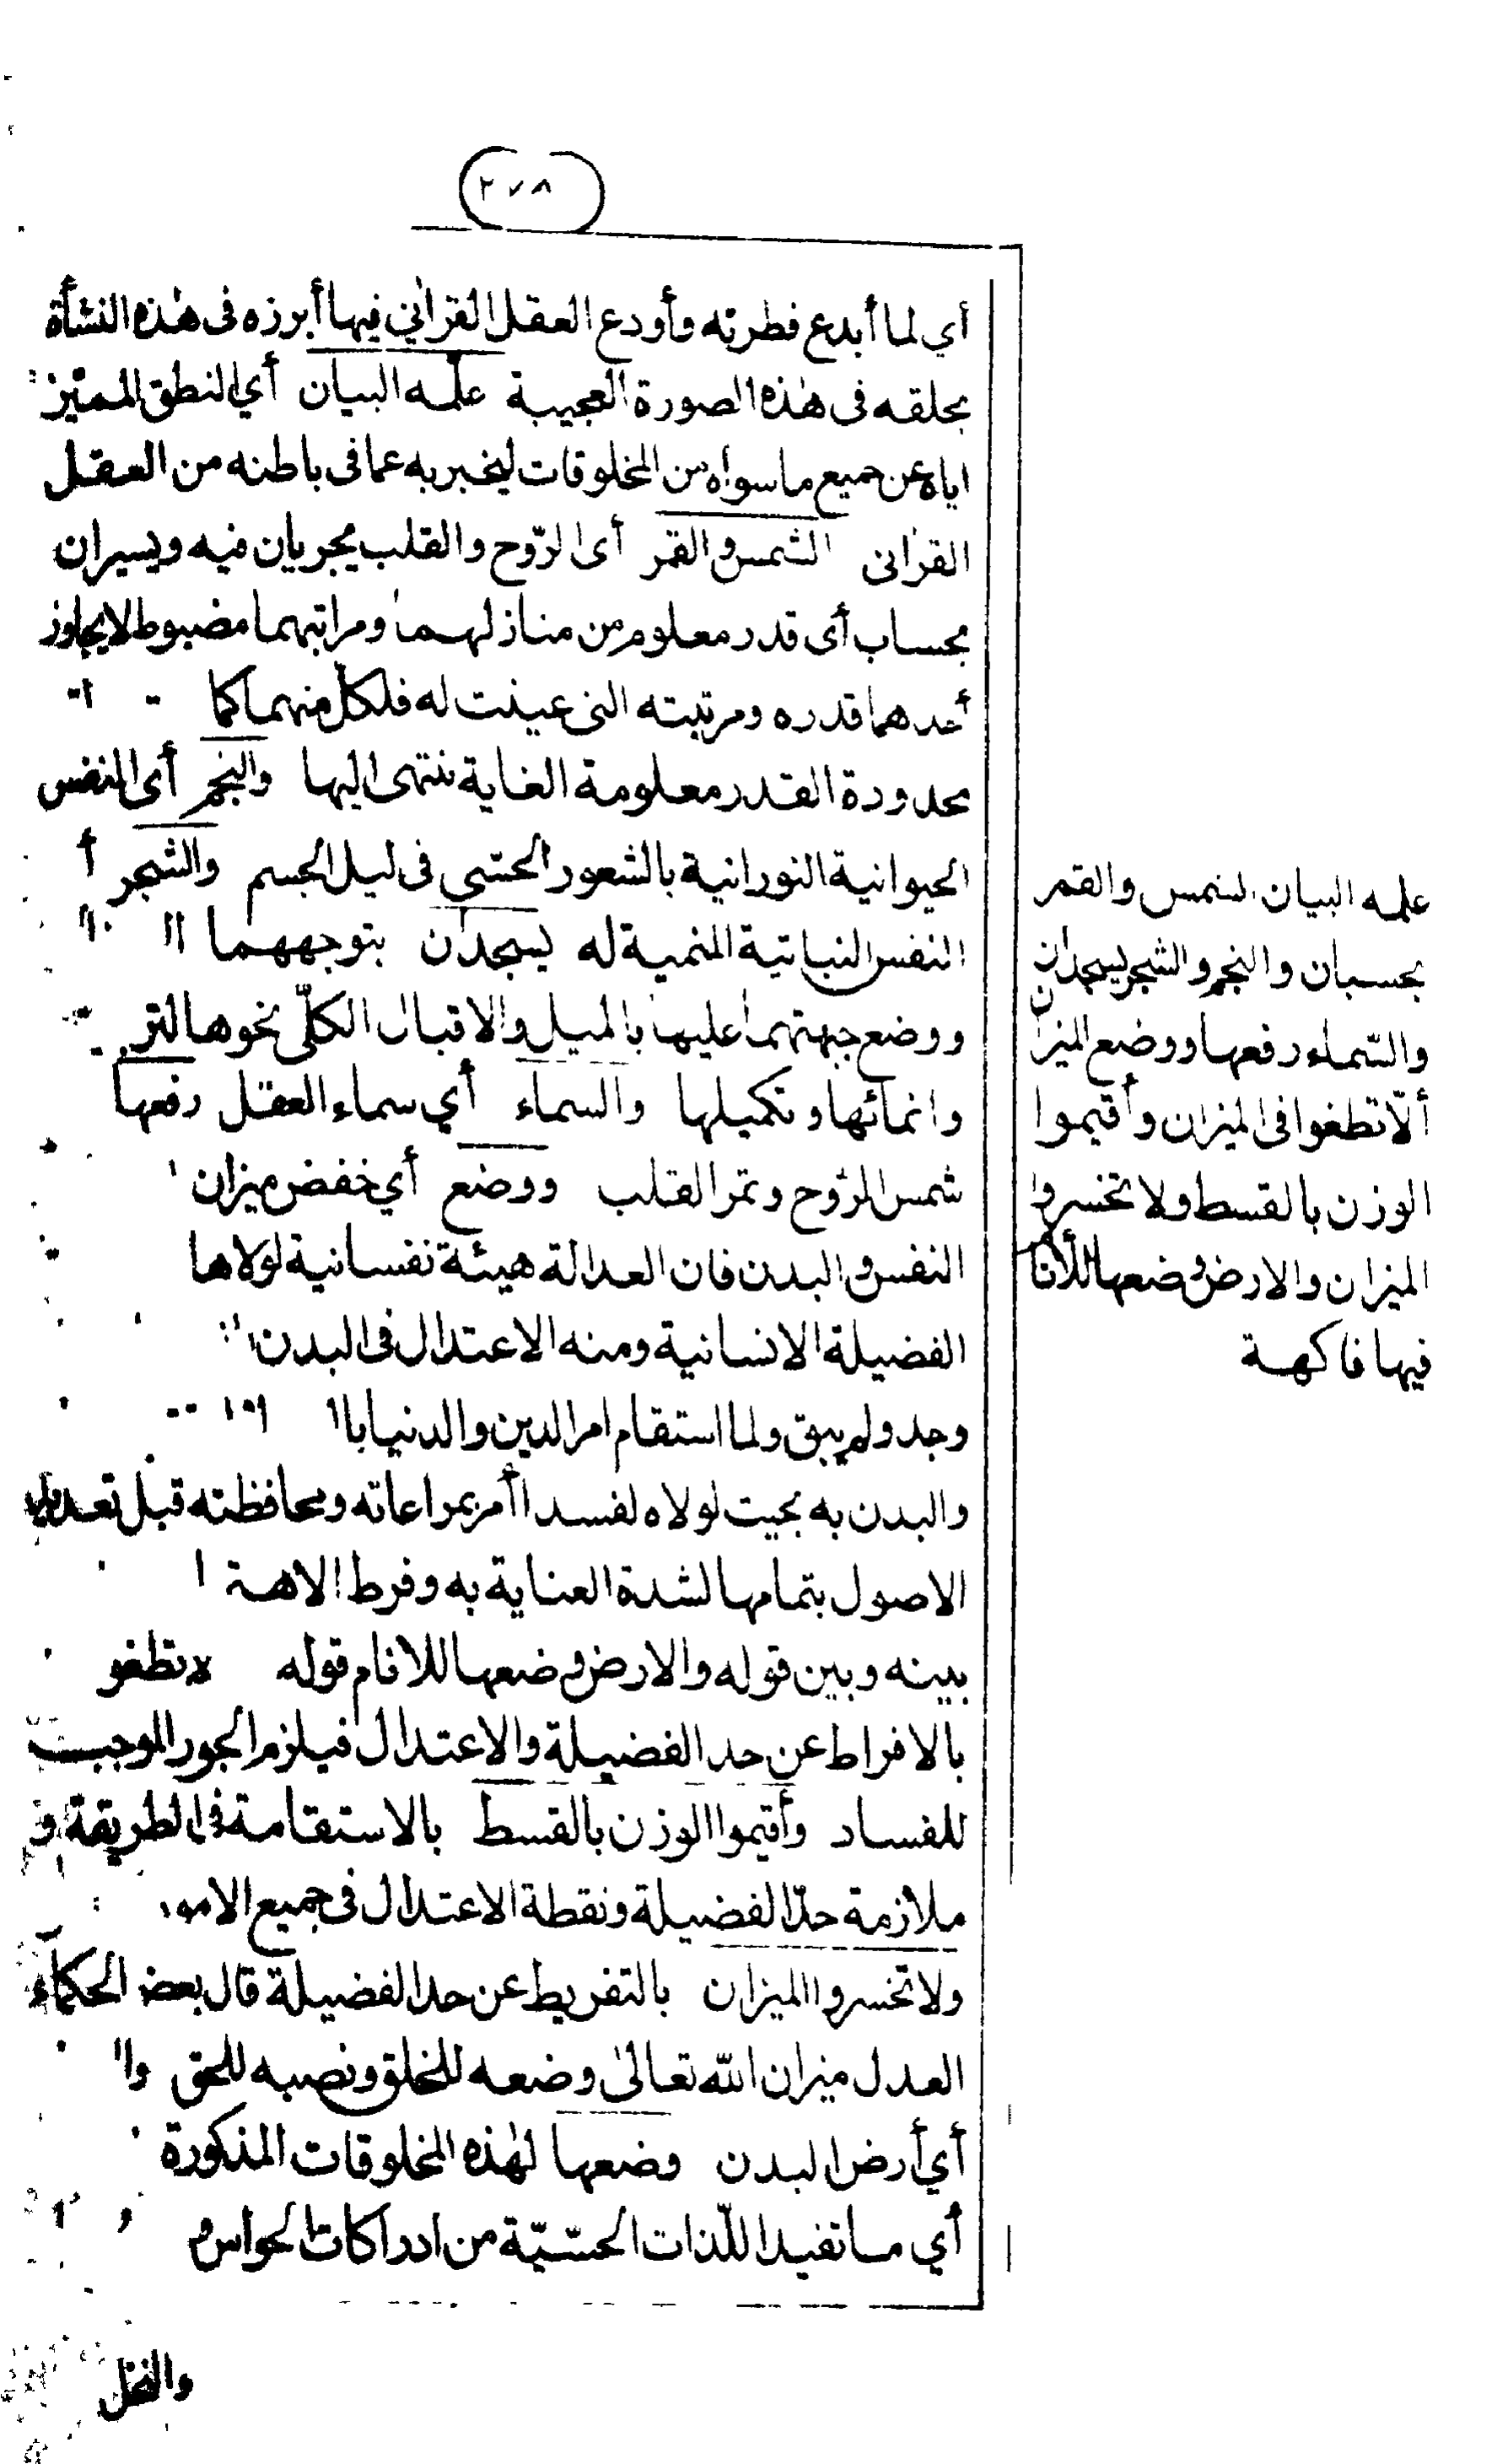 ٢٧٨
أي لما أبدع فطرته وأودع العقل القرآني فيها أبرزه فى هذه النشأة
بخلقه فى هذه الصورة العجيبة علمه البيان أي النطق المميز
اياه عن جميع ما سواه من المخلوقات ليخبر به عما فى باطنه من العقل
القرآنى الشمس والقمر أى الرّوح والقلب يجريان فيه ويسيران
بحساب أى قدر معلوم من منازلهما ومراتبهما مضبوط لا يجاوز
أحدهما قدره ومرتبته التى عينت له فلكلّ منهما كما
محدودة القدر معلومة الغاية ينتهى اليها والنجم أى النفس
الحيوانية النورانية بالشعور الحسّي فى ليل الجسم والشجر أ
النفس النباتية المنمية له يسجدان بتوجههما
ووضع جبهتهما عليها بالميل والاقبال الكلّى نحوها
وانمائها وتكميلها والسماء أي سماء العقل رفعها
شمس الرّوح وقمر القلب ووضع أي خفض ميزان
النفس والبدن فان العدالة هيئة نفسانية لولاها
الفضيلة الانسانية ومنه الاعتدال فى البدن
وجد ولم يبق ولما استقام امر الدين والدنيا
والبدن به بحيث لولاه لفسدا أمر بمراعاته ومحافظته قبل
الاصول بتمامها لشدة العناية به وفرط
بينه وبين قوله والارض وضعها للانام قوله لا تطغو
بالافراط عن حد الفضيلة والاعتدال فيلزم الجور الموجب
للفساد وأقيموا الوزن بالقسط بالاستقامة في الطريقة و
ملازمة حدّ الفضيلة ونقطة الاعتدال فى جميع
ولا تخسروا الميزان بالتفريط عن حد الفضيلة قال بعض الحكماء
العدل ميزان الله تعالى وضعه للخلق ونصبه للحق
أي أرض البدن وضعها لهذه المخلوقات المذكورة
أي ما تفيد اللّذات الحسّيّة من ادراكات الحواس و
والنخل
علمه البيان الشمس والقمر
بحسبان والنجم والشجر يسجدان
والسّماء رفعها ووضع الميزان
ألّا تطغوا فى الميزان وأقيموا
الوزن بالقسط ولا تخسروا
الميزان والارض وضعها للأنا
فيها فاكهة